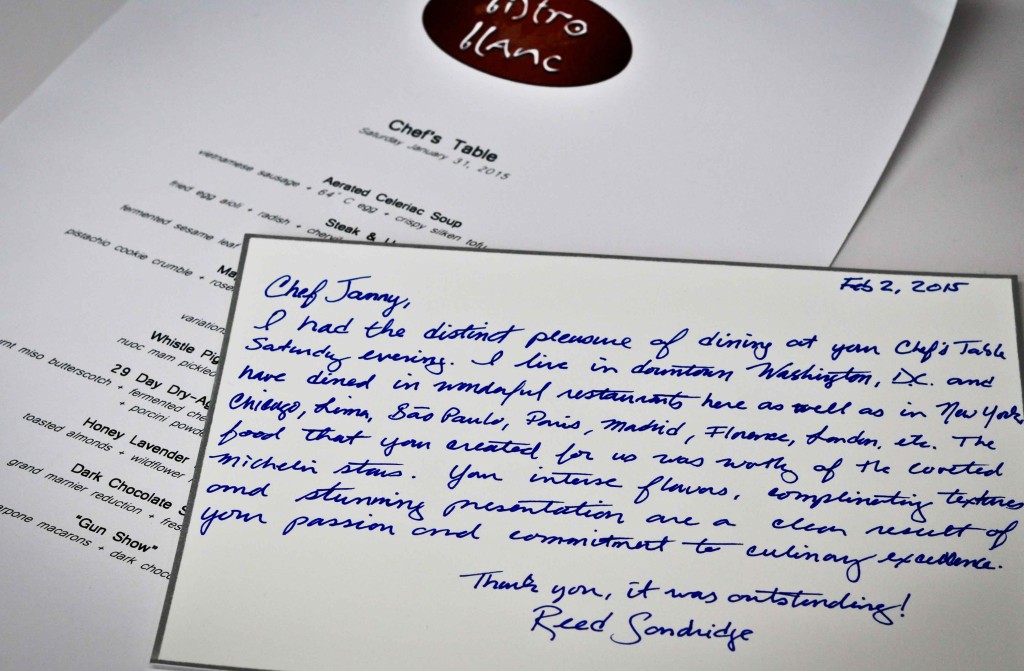 bistro
blanc
Chef's Table
Saturday January 31, 2015
Aerated Celeriac Soup
vietnamese sausage + 64° C egg + crispy silken tofu
Steak &
fried egg aioli + radish +
fermented sesame leaf
pistachio cookie crumble +
Whistle Pig
nuoc mam pickled
29 Day Dry-Ag
miso butterscotch + fermented
+ porcini powde
Honey Lavender
toasted almonds + wildflower
Dark Chocolate S
grand marnier reduction +
"Gun Show"
macarons + dark choc
Feb 2, 2015
Chef Janny,
I had the distinct pleasure of dining at your Chef's Table
Saturday evening. I live in downtown Washington, DC. and
have dined in wonderful restaurants here as well as in New York,
Chicago, Lima, São Paulo, Paris, Madrid, Florence, London, etc. The
food that you created for us was worthy of the coveted
Michelin stars. Your intense flavors, complimenting textures
and stunning presentation are a clear result of
your passion and commitment to culinary excellence.
Thank you, it was outstanding!
Reed Sandridge